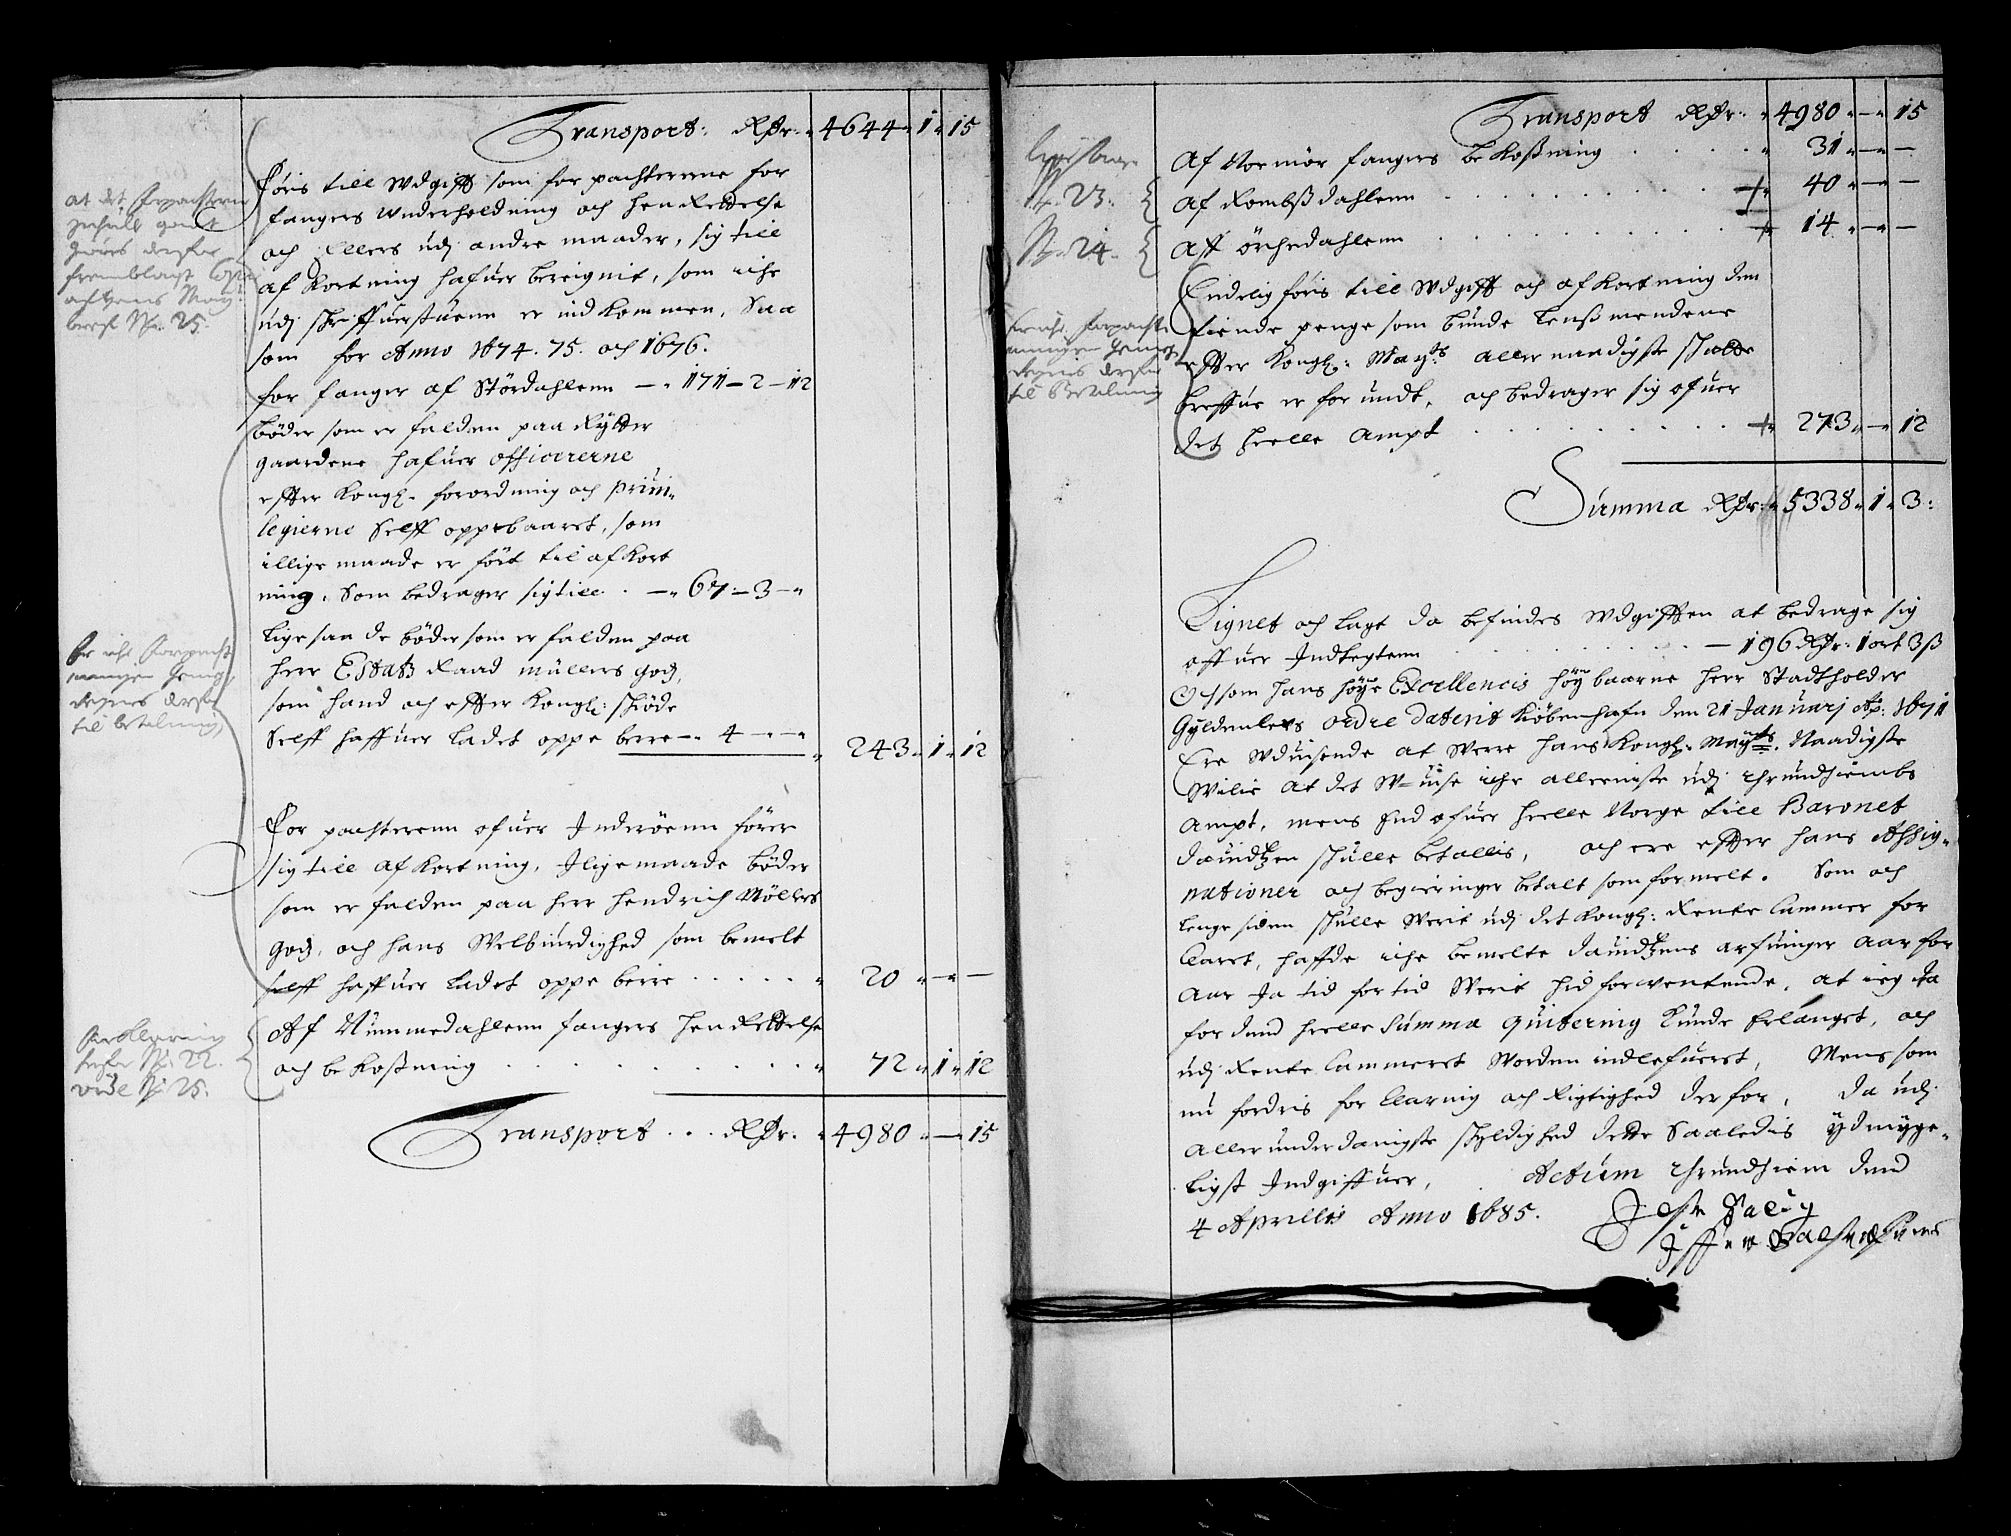 Transport: Rdr: 4644 - 1 - 15
at det Forpachtern
Føris till Udgifft som for pachterene for
fangers Underholdning och henRettelse
och Ellers udj andre maader, sig till
af Kortning hafuer bereignit, som iche
udj Schriffuerstuenn er indkommen, Saa
som for Anno 1674. 75. och 1676.
No. 25.
for fanger af Stördahlenn — 171 - 2 - 12
böder som er falden paa Rytter
gaardene hafuer officererne
effter Kongl. forordning och privi-
legierne Selff oppebaaret, som
illige maade er fört til afKort
ning, Som bedrager sig till . — 67 - 3 -
Ligesaa de böder som er falden paa
herr Etatz Raad müllers godz,
som hand och effter Kongl: schiöde
Selff haffuer Ladet oppe berre — 4 - -
243 - 1 - 12
er iche Forpacht
til betalning
For pachterenn ofuer Inderöenn förer
sig till af Kortning, Ilige maade böder
som er falden paa herr Hendrich Möllers
godz, och hans Velbiurdighed som bemelt
selff haffuer Ladet oppe berre . . . . . 20 - -
Af Nummedahlenn fangers henRettelse
och beKostning . . . . . . . 72 - 1 - 12
No. 22.
No. 25.
Transport . . . Rdr: 4980 - — 15
Transport Rdr: 4980 - — 15
Af Normör fangers beKostning . . . . . 31 - — -
No. 23.
Af Rombsdahlenn . . . . . . + 40 - — -
No. 24.
Aff örchedahlenn . . . . . . + 14 - — -
Endelig föris till Udgifft och afKortning den
fiende penge som bunde Lensmendene
effter Kongl: Mayts aller naadigste schatte
breffue er forundt, och bedrager sig ofuer
det heelle Ampt . . . . . . + 273 - — 12
til Betalning
Summa Rdr: 5338 - 1 - 3:
Lignet och Lagt da befindes Udgifften at bedrage sig
offuer Indtegtenn . . . . . — 196 Rdr: 1 ort 3 ß
Efftersom hans höye Excellencis höybaarne herr Stadtholder
Gyldenlews ordre daterit Kiöbenhafn den 21 Januarj Ao: 1671
Ere Udvisende at Were hans Kongl. Mayts. Naadigste
Wilie at det W-uise iche allerniste udj Thrundhiembs
Ampt, mens End ofuer heelle Norge till Baronet
Dauidtzen schulle betallis, och ere effter hans Assig-
nationer och begieringer betalt som formelt. Som och
Lenge siden schulle Werit udj det Kongl: Rente Cammer for
Claret, haffde iche bemelte Dauidtzens arfuinger Aar for
Aar Ja tid for tid Werit hid forwentende, at ieg da
for dend heelle Summa Quitering Kunde Erlanget, och
udj Rente Cammeret Worden indlefueret, Mens som
nu fordris for Klaring och Rigtighed derfor, Da udj
Allerunderdanigste schyldighed dette Saaledis ydmyge-
ligst Indgiffuer, Actum Thrundhiem dend
4 Aprillis Anno 1685.